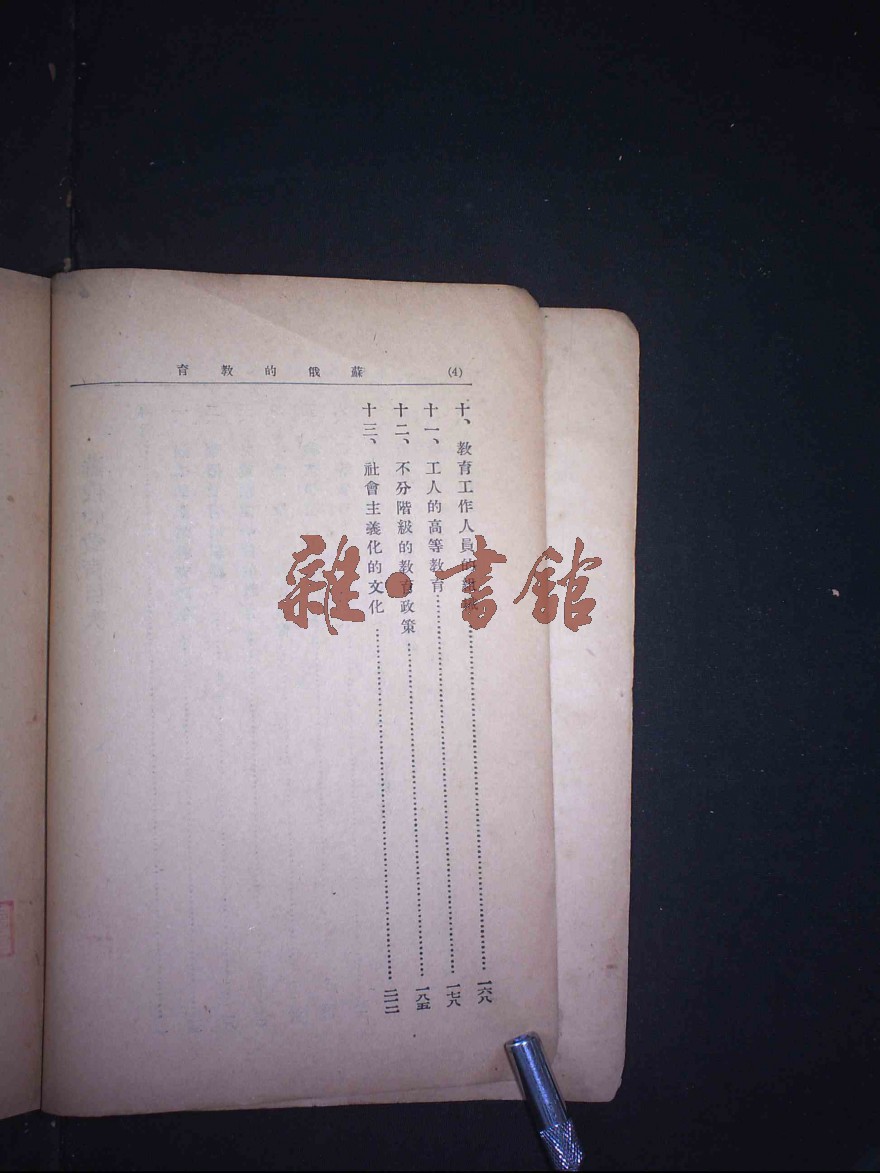 (4) 蘇俄的教育
十、教育工作人員的 一六八
十一、工人的高等教育 一七八
十二、不分階級的教育政策 一八五
十三、社會主義化的文化 二一二
雜·書館